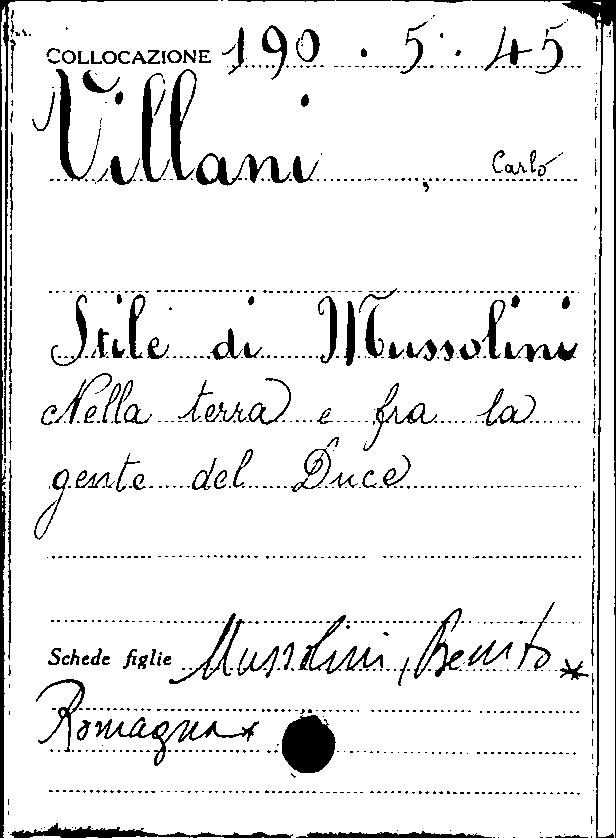 COLLOCAZIONE 190 . 5 . 45
Villani , Carlo
Stile di Mussolini
Nella terra e fra la
gente del Duce
Schede figlie Mussolini, Benito *
Romagna *